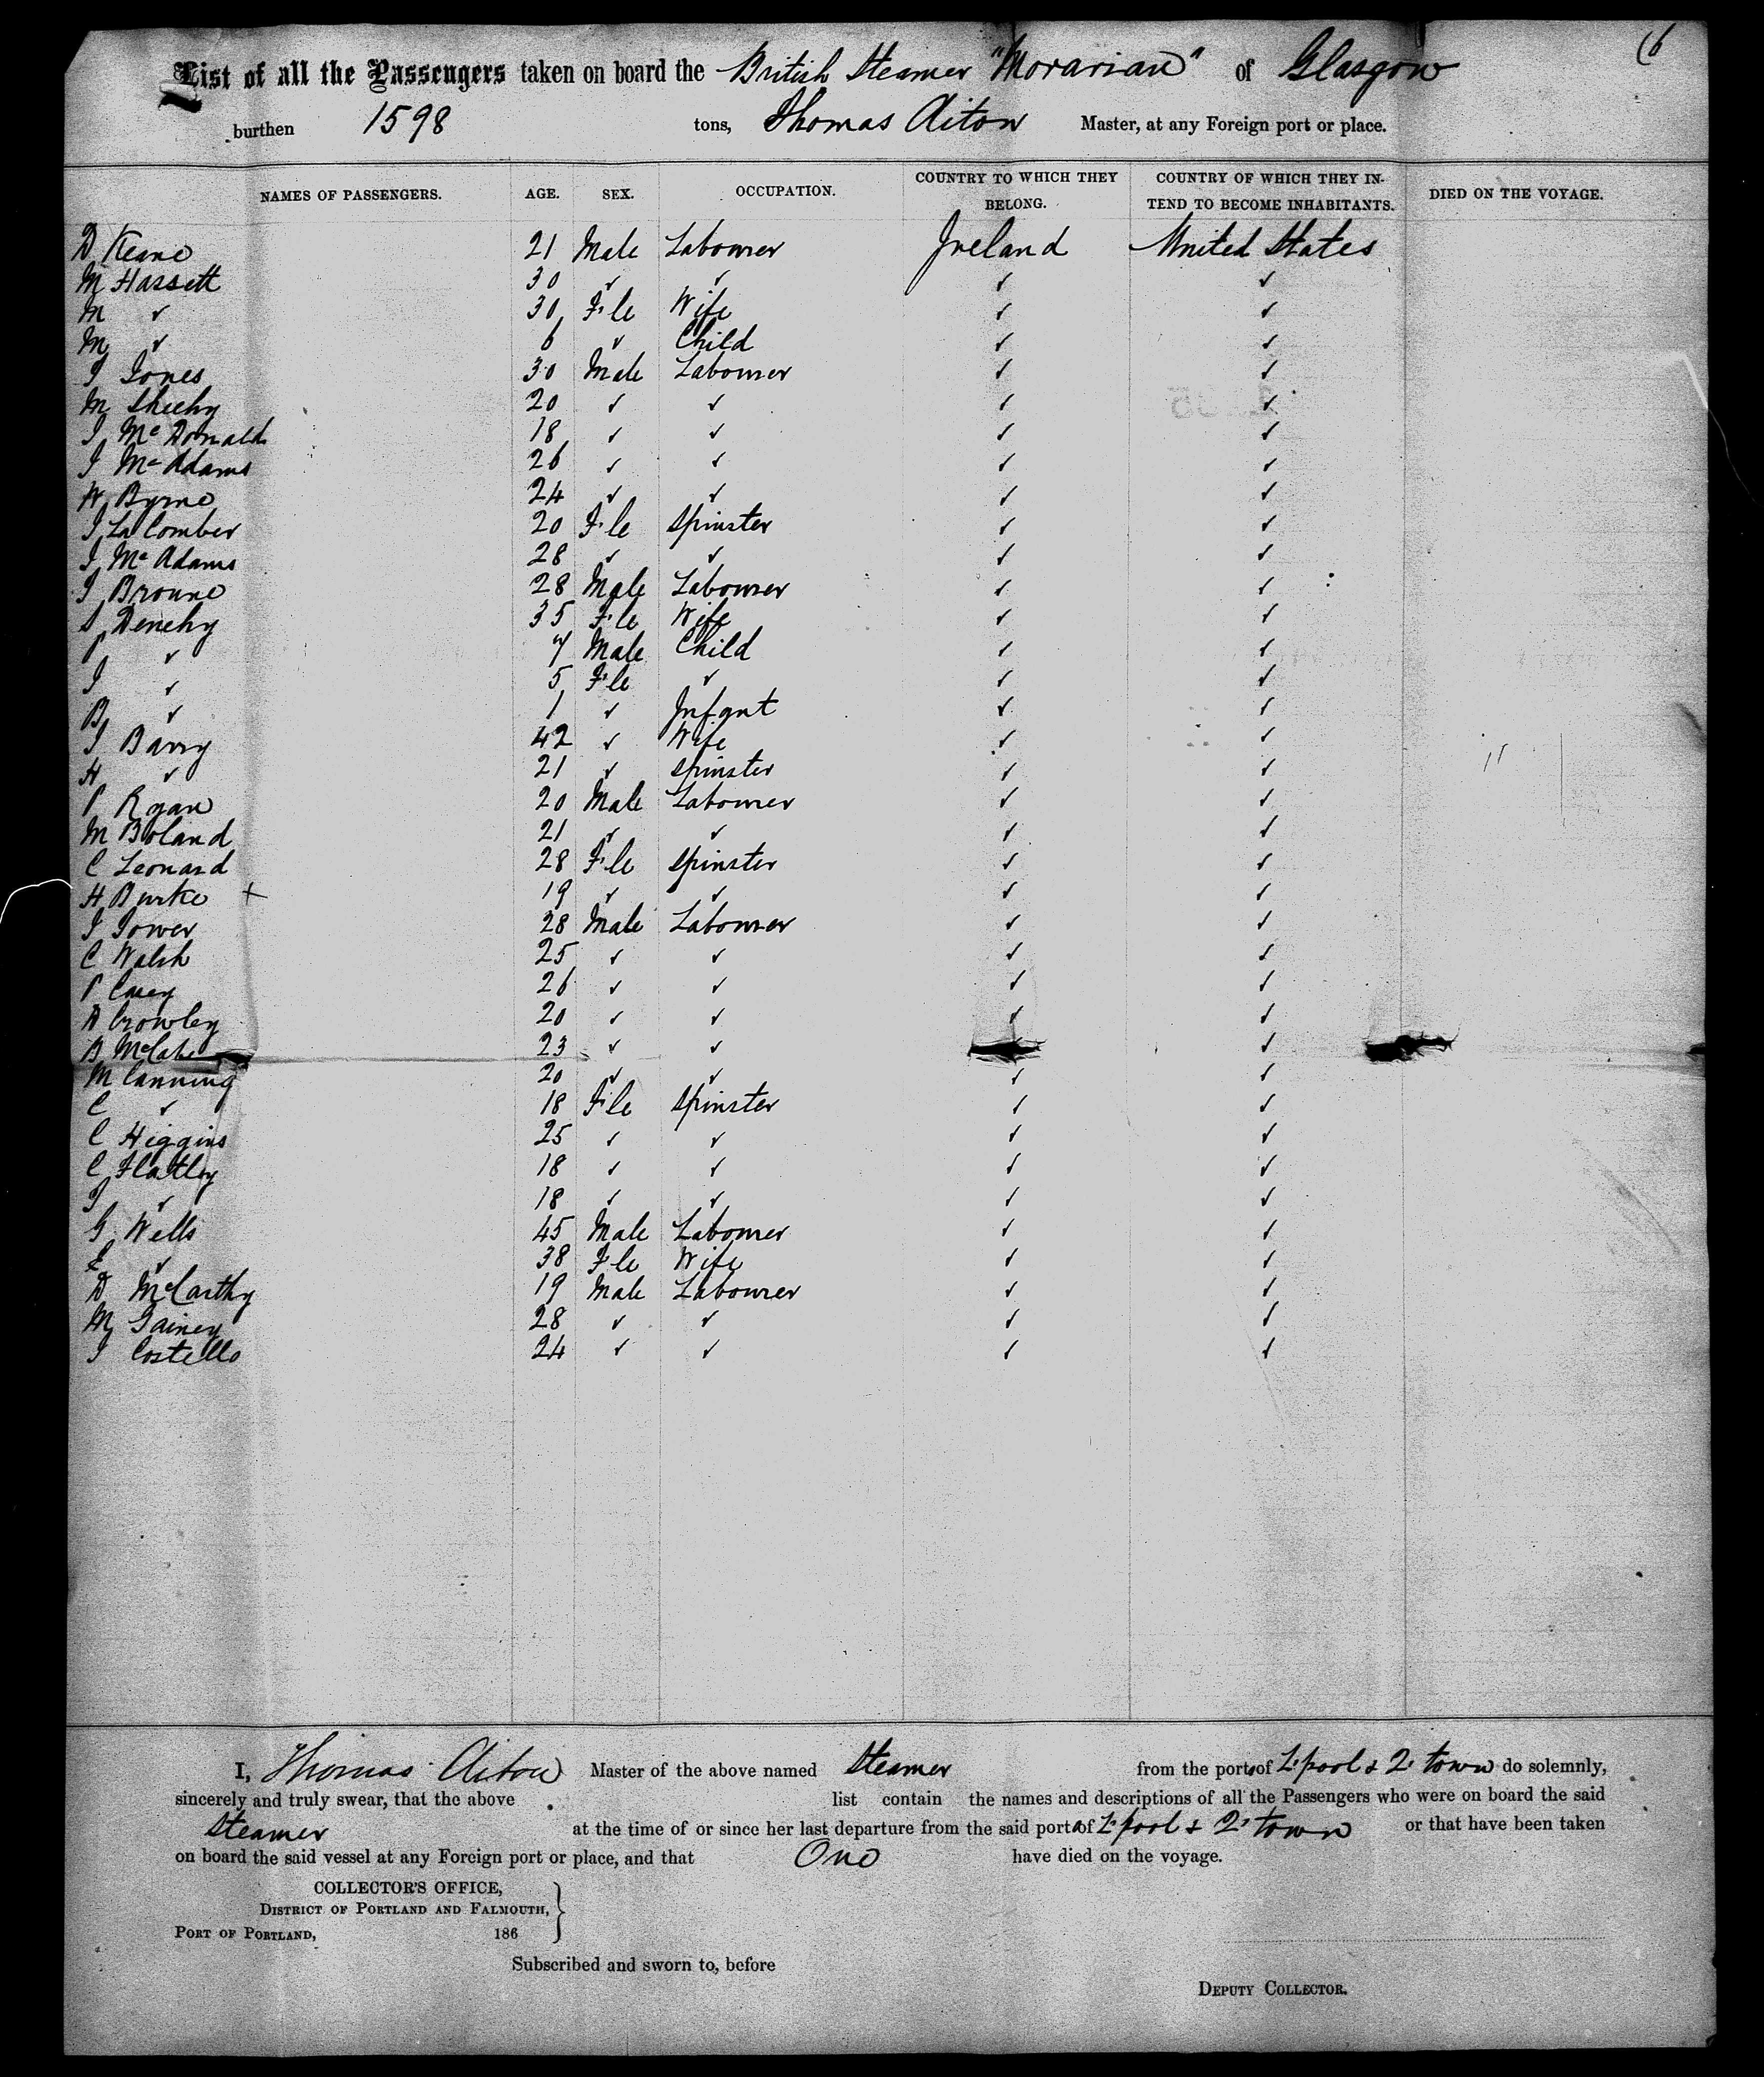 (6
List of all the Passengers taken on board the British Steamer "Moravian" of Glasgow
burthen 1598 tons, Thomas Aiton Master, at any Foreign port or place.
NAMES OF PASSENGERS. AGE. SEX. OCCUPATION. COUNTRY TO WHICH THEY BELONG. COUNTRY OF WHICH THEY INTEND TO BECOME INHABITANTS. DIED ON THE VOYAGE.
D Keane 21 Male Labourer Ireland United States
M Hassett 30 ✓ ✓ ✓ ✓
M ✓ 30 F.le Wife ✓ ✓
M ✓ 6 ✓ Child ✓ ✓
J Jones 30 Male Labourer ✓ ✓
M Sheehy 20 ✓ ✓ ✓ ✓
J McDonald 18 ✓ ✓ ✓ ✓
J McAdams 26 ✓ ✓ ✓ ✓
W Byrne 24 ✓ ✓ ✓ ✓
J La Comber 20 F.le Spinster ✓ ✓
J McAdams 28 ✓ ✓ ✓ ✓
J Browne 28 Male Labourer ✓ ✓
S Denehy 35 F.le Wife ✓ ✓
P ✓ 7 Male Child ✓ ✓
J ✓ 5 F.le ✓ ✓ ✓
B ✓ 1 ✓ Infant ✓ ✓
J Barry 42 ✓ Wife ✓ ✓
H ✓ 21 ✓ Spinster ✓ ✓
P Ryan 20 Male Labourer ✓ ✓
M Boland 21 ✓ ✓ ✓ ✓
C Leonard 28 F.le Spinster ✓ ✓
H Burke + 19 ✓ ✓ ✓ ✓
J Tower 28 Male Labourer ✓ ✓
C Walsh 25 ✓ ✓ ✓ ✓
P Casey 26 ✓ ✓ ✓ ✓
D Crowley 20 ✓ ✓ ✓ ✓
B McCabe 23 ✓ ✓ ✓
M Canning 20 ✓ ✓ ✓ ✓
C ✓ 18 F.le Spinster ✓ ✓
C Higgins 25 ✓ ✓ ✓ ✓
C Flatley 18 ✓ ✓ ✓ ✓
J ✓ 18 ✓ ✓ ✓ ✓
G Wells 45 Male Labourer ✓ ✓
E ✓ 38 F.le Wife ✓ ✓
D McCarthy 19 Male Labourer ✓ ✓
M Gainey 28 ✓ ✓ ✓ ✓
J Costello 24 ✓ ✓ ✓ ✓
I, Thomas Aiton Master of the above named Steamer from the ports of L.pool & Q. town do solemnly,
sincerely and truly swear, that the above list contain the names and descriptions of all the Passengers who were on board the said
Steamer at the time of or since her last departure from the said port of L.pool & Q. town or that have been taken
on board the said vessel at any Foreign port or place, and that One have died on the voyage.
COLLECTOR'S OFFICE,
DISTRICT OF PORTLAND AND FALMOUTH,
PORT OF PORTLAND, 186
Subscribed and sworn to, before
DEPUTY COLLECTOR.